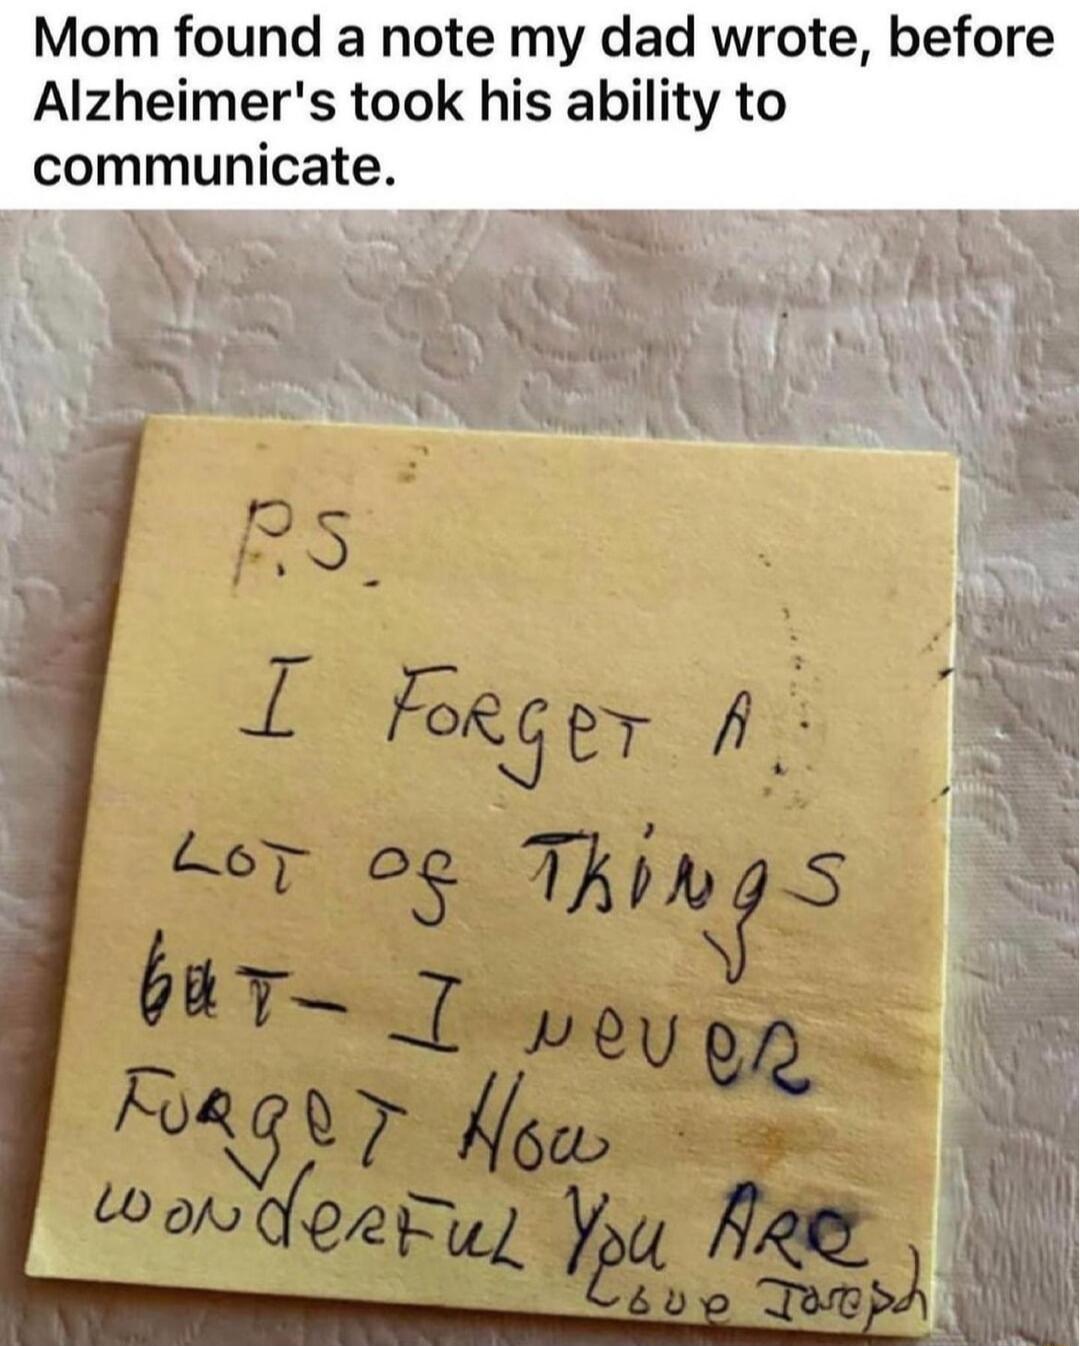 Mom found a note my dad wrote, before
Alzheimer's took his ability to
communicate.
P.S.
I FORgeT A
LOT Of ThiNgS
buT- I NeveR
FORgeT How
WONdeRFUL You ARe
Love Joseph